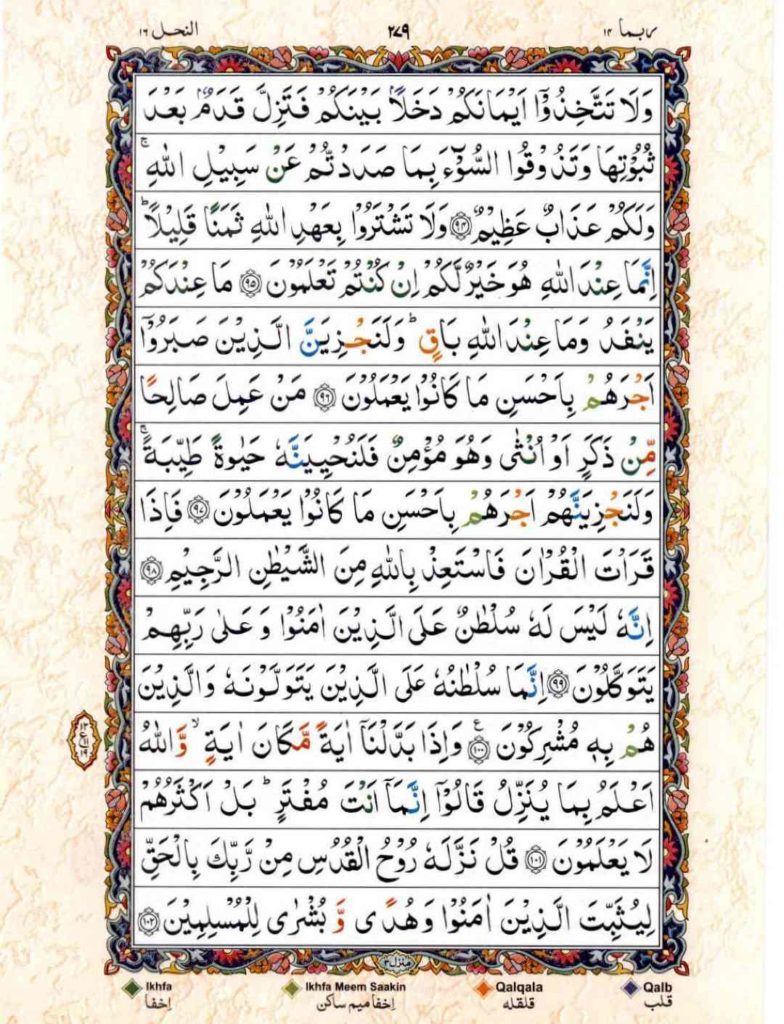 ربما ۱۴
۲۷۹
النحل ۱۶
وَلَا تَتَّخِذُوْۤا اَيْمَانَكُمْ دَخَلًاۢ بَيْنَكُمْ فَتَزِلَّ قَدَمٌۢ بَعْدَ
ثُبُوْتِهَا وَتَذُوْقُوا السُّوْٓءَ بِمَا صَدَدْتُّمْ عَنْ سَبِيْلِ اللّٰهِ ۚ
وَلَكُمْ عَذَابٌ عَظِيْمٌ ﴿۹۴﴾ وَلَا تَشْتَرُوْا بِعَهْدِ اللّٰهِ ثَمَنًا قَلِيْلًا ؕ
اِنَّمَا عِنْدَ اللّٰهِ هُوَ خَيْرٌ لَّكُمْ اِنْ كُنْتُمْ تَعْلَمُوْنَ ﴿۹۵﴾ مَا عِنْدَكُمْ
يَنْفَدُ وَمَا عِنْدَ اللّٰهِ بَاقٍ ؕ وَلَنَجْزِيَنَّ الَّذِيْنَ صَبَرُوْۤا
اَجْرَهُمْ بِاَحْسَنِ مَا كَانُوْا يَعْمَلُوْنَ ﴿۹۶﴾ مَنْ عَمِلَ صَالِحًا
مِّنْ ذَكَرٍ اَوْ اُنْثٰى وَهُوَ مُؤْمِنٌ فَلَنُحْيِيَنَّهٗ حَيٰوةً طَيِّبَةً ۚ
وَلَنَجْزِيَنَّهُمْ اَجْرَهُمْ بِاَحْسَنِ مَا كَانُوْا يَعْمَلُوْنَ ﴿۹۷﴾ فَاِذَا
قَرَاْتَ الْقُرْاٰنَ فَاسْتَعِذْ بِاللّٰهِ مِنَ الشَّيْطٰنِ الرَّجِيْمِ ﴿۹۸﴾
اِنَّهٗ لَيْسَ لَهٗ سُلْطٰنٌ عَلَى الَّذِيْنَ اٰمَنُوْا وَعَلٰى رَبِّهِمْ
يَتَوَكَّلُوْنَ ﴿۹۹﴾ اِنَّمَا سُلْطٰنُهٗ عَلَى الَّذِيْنَ يَتَوَلَّوْنَهٗ وَالَّذِيْنَ
هُمْ بِهٖ مُشْرِكُوْنَ ﴿۱۰۰﴾ ع وَاِذَا بَدَّلْنَاۤ اٰيَةً مَّكَانَ اٰيَةٍ ۙ وَّاللّٰهُ
اَعْلَمُ بِمَا يُنَزِّلُ قَالُوْۤا اِنَّمَاۤ اَنْتَ مُفْتَرٍ ؕ بَلْ اَكْثَرُهُمْ
لَا يَعْلَمُوْنَ ﴿۱۰۱﴾ قُلْ نَزَّلَهٗ رُوْحُ الْقُدُسِ مِنْ رَّبِّكَ بِالْحَقِّ
لِيُثَبِّتَ الَّذِيْنَ اٰمَنُوْا وَهُدًى وَّبُشْرٰى لِلْمُسْلِمِيْنَ ﴿۱۰۲﴾
منزل ۳
Ikhfa
اِخفا
Ikhfa Meem Saakin
اِخفا میم ساکن
Qalqala
قلقله
Qalb
قلب